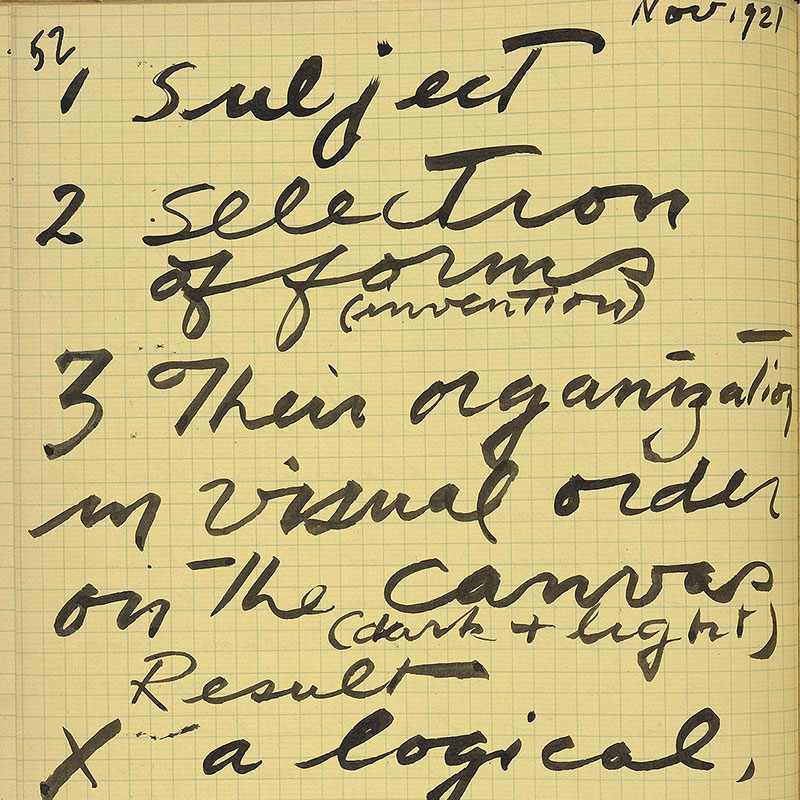 Nov. 1921
52
1 Subject
2 Selection
of forms
(invention)
3 Their organization
in visual order
on the canvas
(dark + light)
Result
X a logical,